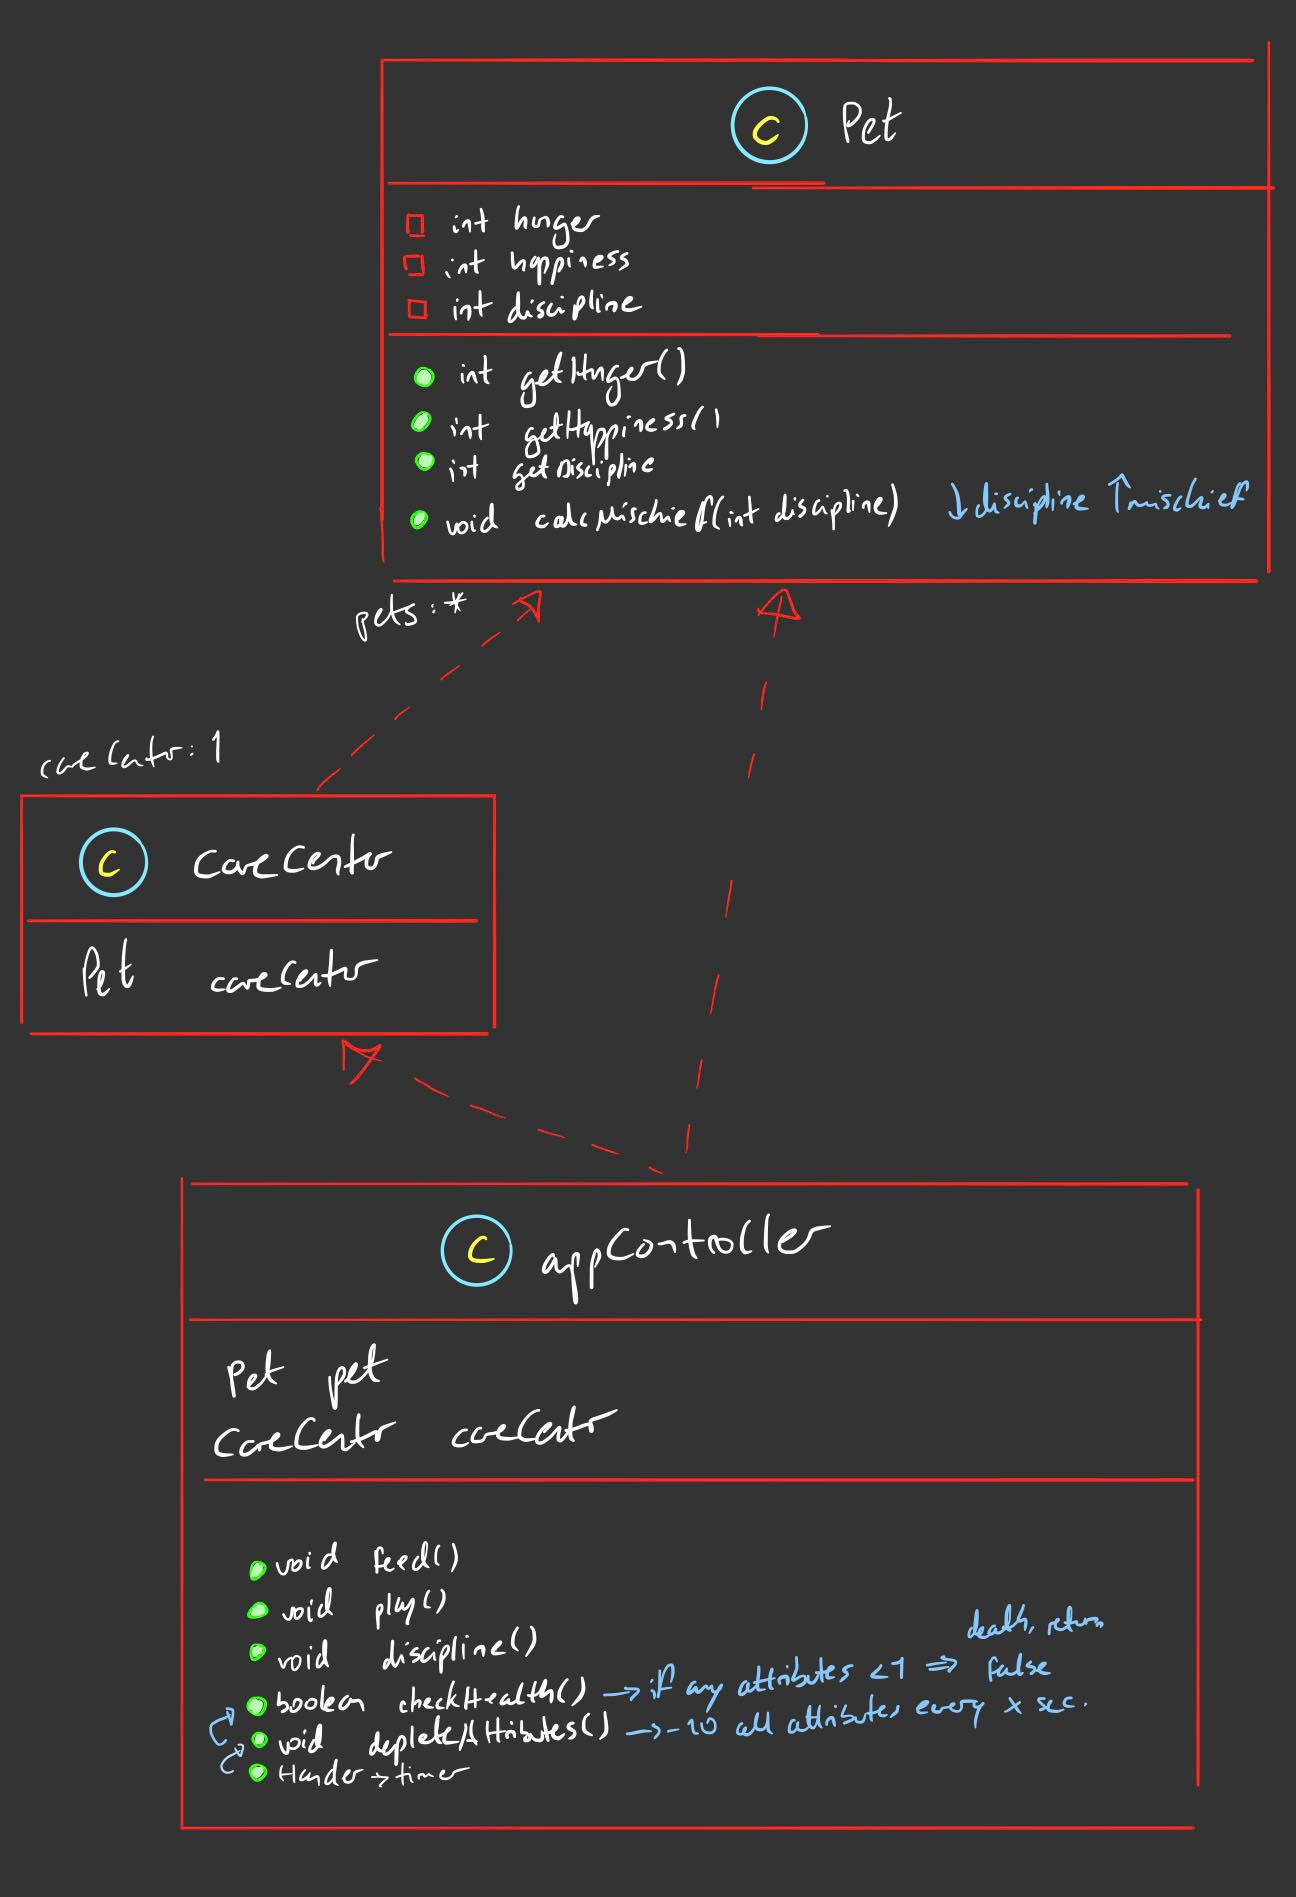 C Pet
int hunger
int happiness
int discipline
int getHunger()
int getHappiness()
int getDiscipline
void calcMischief(int discipline) ↓discipline ↑mischief
pets:*
careCentr: 1
C CareCentr
Pet careCentr
C appController
Pet pet
CareCentr careCentr
void feed()
void play()
void discipline()
death, return
boolean checkHealth() → if any attributes <1 ⇒ false
void depleteAttributes() → -10 all attributes every x sec.
Handler → timer